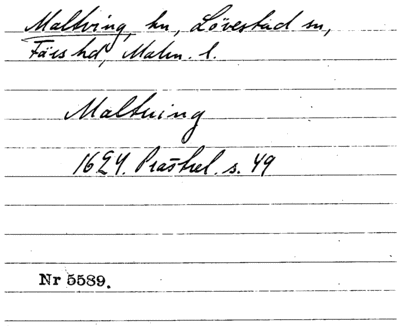 Maltving, hn, Lövestad sn,
Färs hd, Malm. l.
Maltving
1624. Prästrel. s. 49
Nr 5589.